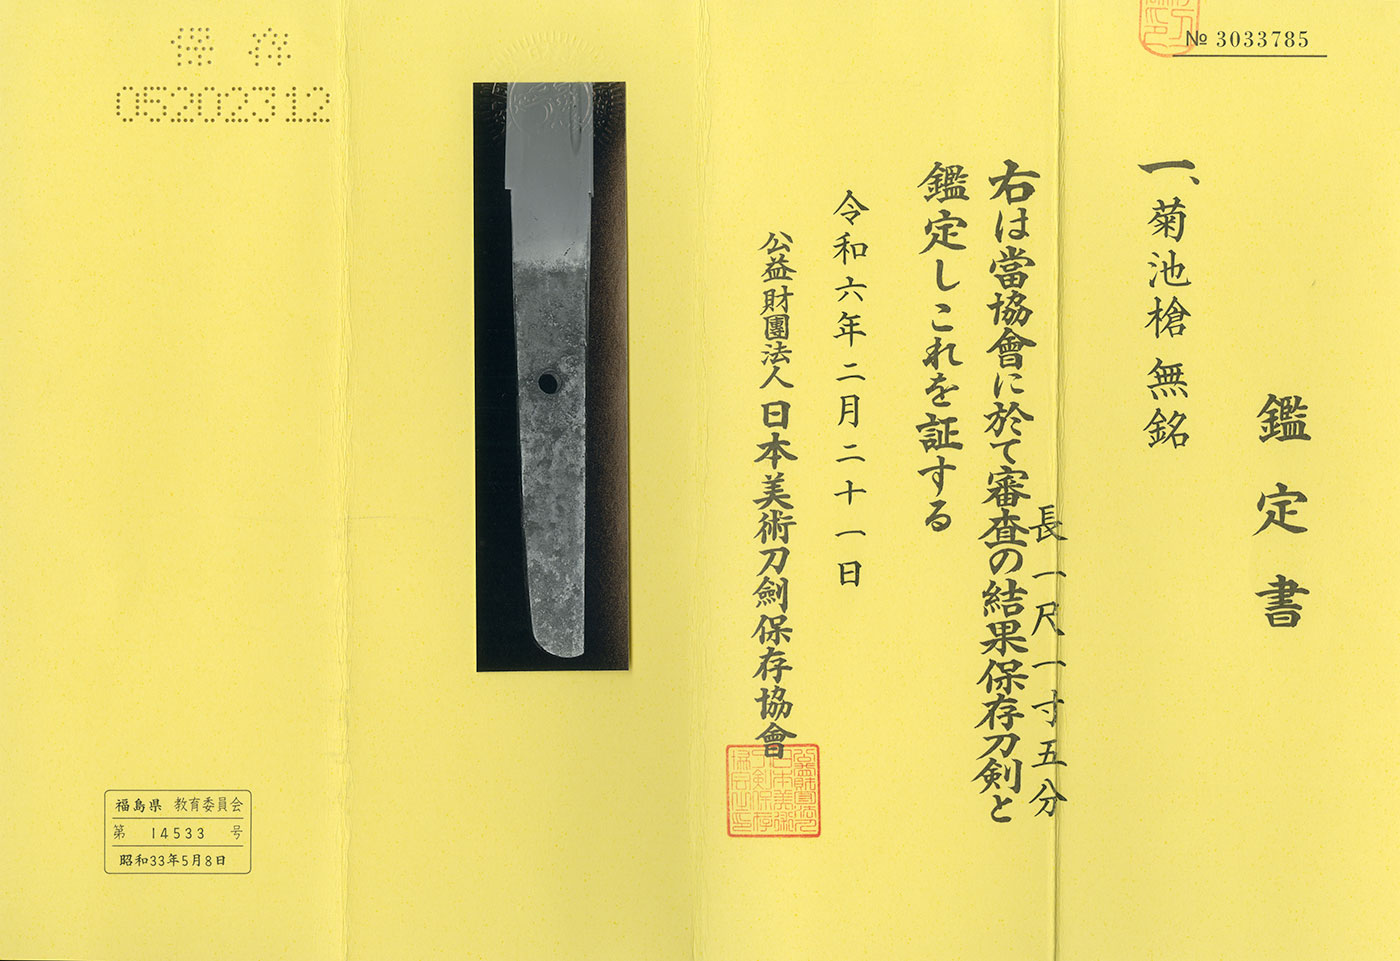 № 3033785
鑑定書
一、菊池槍 無銘
長一尺一寸五分
右は當協會に於て審査の結果保存刀剣と
鑑定しこれを証する
令和六年二月二十一日
公益財團法人 日本美術刀劍保存協會
保存
05202312
福島県 教育委員会
第 14533 号
昭和33年5月8日